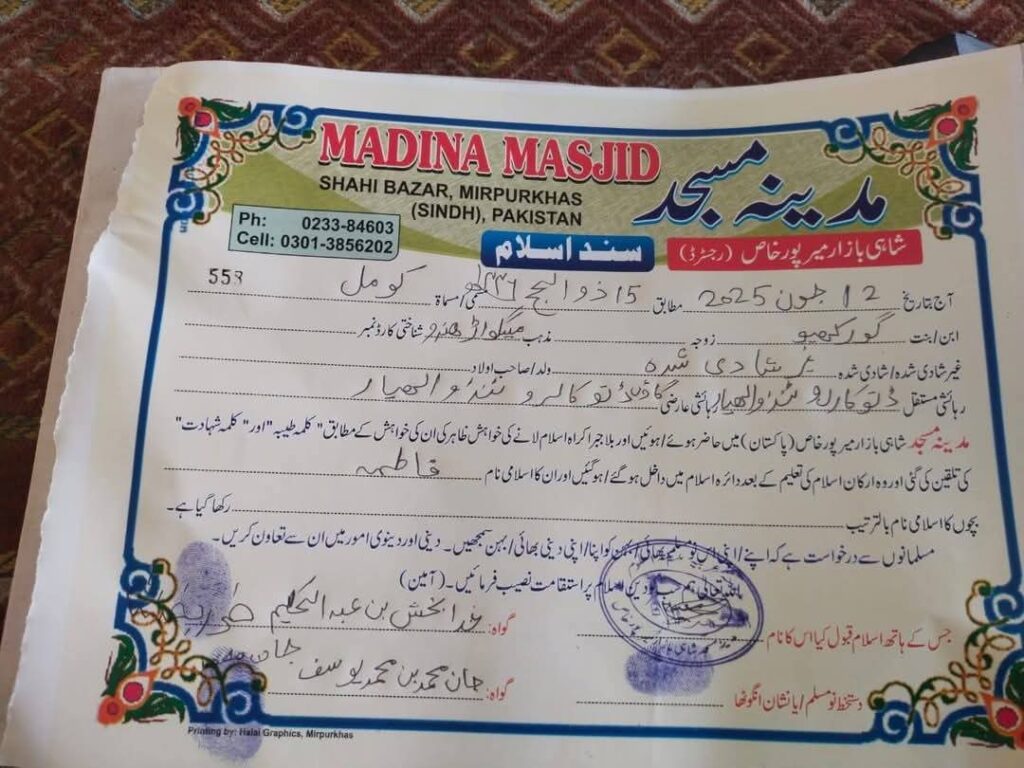 MADINA MASJID
مدینہ مسجد
SHAHI BAZAR, MIRPURKHAS
(SINDH), PAKISTAN
Ph: 0233-84603
Cell: 0301-3856202
سند اسلام
شاہی بازار میرپورخاص (رجسٹرڈ)
558
آج بتاریخ 12 جون 2025 مطابق 15 ذوالحج ۱۴۴۶ھ مسمّی/مسماۃ کومل
ابن/بنت زوجہ مذہب میگواڑ ھندو شناختی کارڈ نمبر
غیر شادی شدہ/شادی شدہ غیر شادی شدہ ولد/صاحب اولاد
رہائشی مستقل ٹنڈوالھیار رہائشی عارضی ٹنڈوالھیار
مدینہ مسجد شاہی بازار میرپورخاص (پاکستان) میں حاضر ہوئے/ہوئیں اور بلا جبر اکراہ اسلام لانے کی خواہش ظاہر کی ان کی خواہش کے مطابق "کلمہ طیبہ" اور "کلمہ شہادت"
کی تلقین کی گئی اور وہ ارکان اسلام کی تعلیم کے بعد دائرہ اسلام میں داخل ہو گئے/ہوگئیں اور ان کا اسلامی نام فاطمہ
بچوں کا اسلامی نام بالترتیب رکھا گیا ہے۔
مسلمانوں سے درخواست ہے کہ اپنے/اپنی اس نو مسلم بھائی/بہن کو اپنا/اپنی دینی بھائی/بہن سمجھیں۔ دینی اور دنیوی امور میں ان سے تعاون کریں۔
اللہ تعالیٰ ہم سب کو دین اسلام پر استقامت نصیب فرمائیں۔ (آمین)
جس کے ہاتھ اسلام قبول کیا اس کا نام
گواہ: خدا بخش بن عبدالحکیم
دستخط نو مسلم/یا نشان انگوٹھا
گواہ: جان محمد بن محمد یوسف
Printing by: Halai Graphics, Mirpurkhas